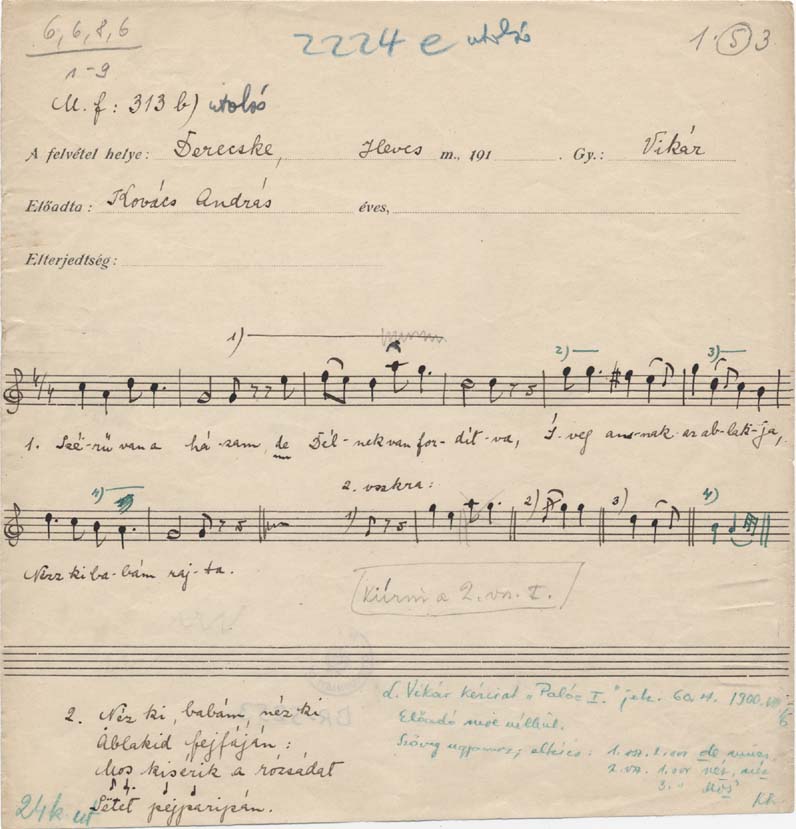 6, 6, 8, 6
2224 e utolsó
1. 5 3
1-9
M. f: 313 b) utolsó
A felvétel helye: Derecske, Heves m., 191 . Gy.: Vikár
Előadta: Kovács András éves,
Elterjedtség:
1)
2)
3)
1. Szé-rü van a há-zam, de Dél-nek van for-dít-va, Ü-veg an-nak az ab-lak-ja,
4)
2. vszkra:
1)
2)
3)
4)
Nézz ki ba-bám raj-ta.
Kiírni a 2. vsz. I.
2. Néz ki, babám, néz ki
Áblakid fejfáján:
Mos kisérik a rózsádat
Sëtet péjparipán.
L. Vikár kézirat „Palóc I." jelz. 60. sz. 1900.
Előadó neve nélkül.
Szöveg ugyanaz, eltérés: 1. vsz. 2. sor de nincs.
2. vsz. 1. sor néz, néz
3. " Mos
24k ut